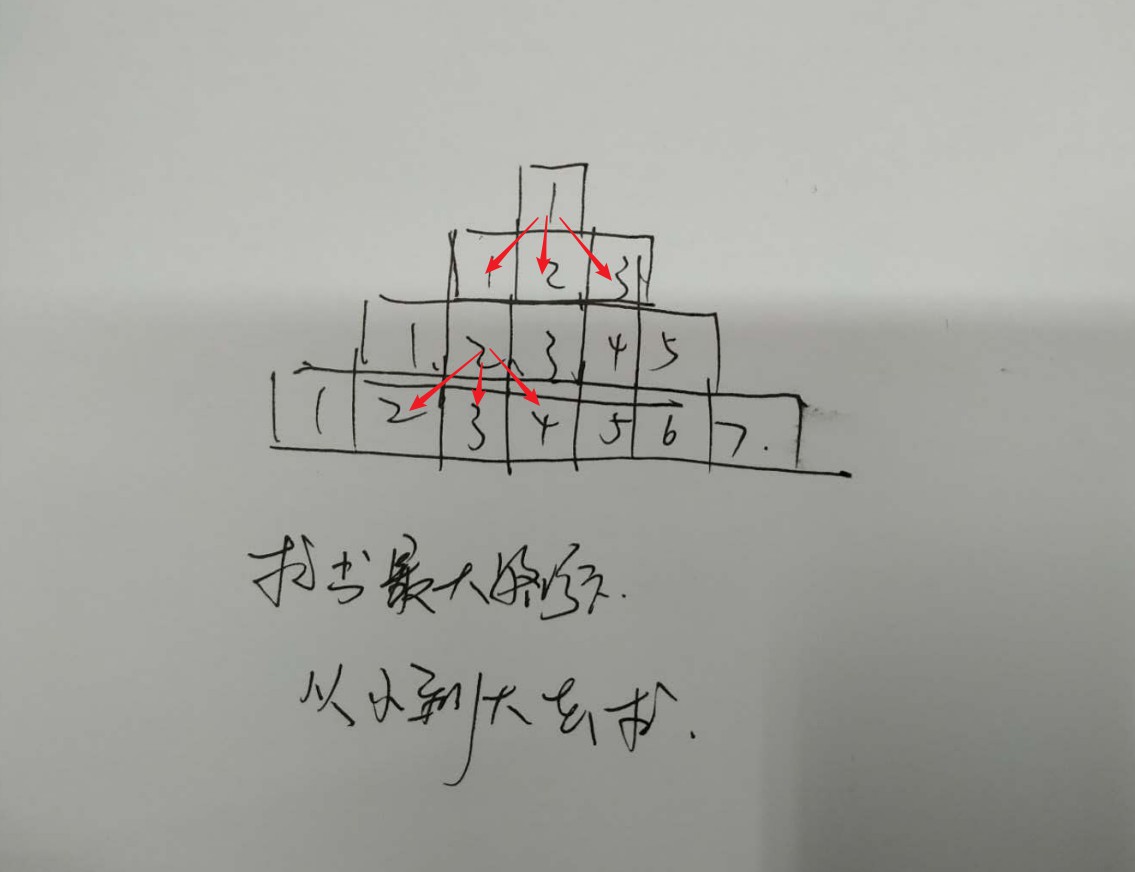 1
1 2 3
1 2 3 4 5
1 2 3 4 5 6 7.
求出最大的
从小到大去求.